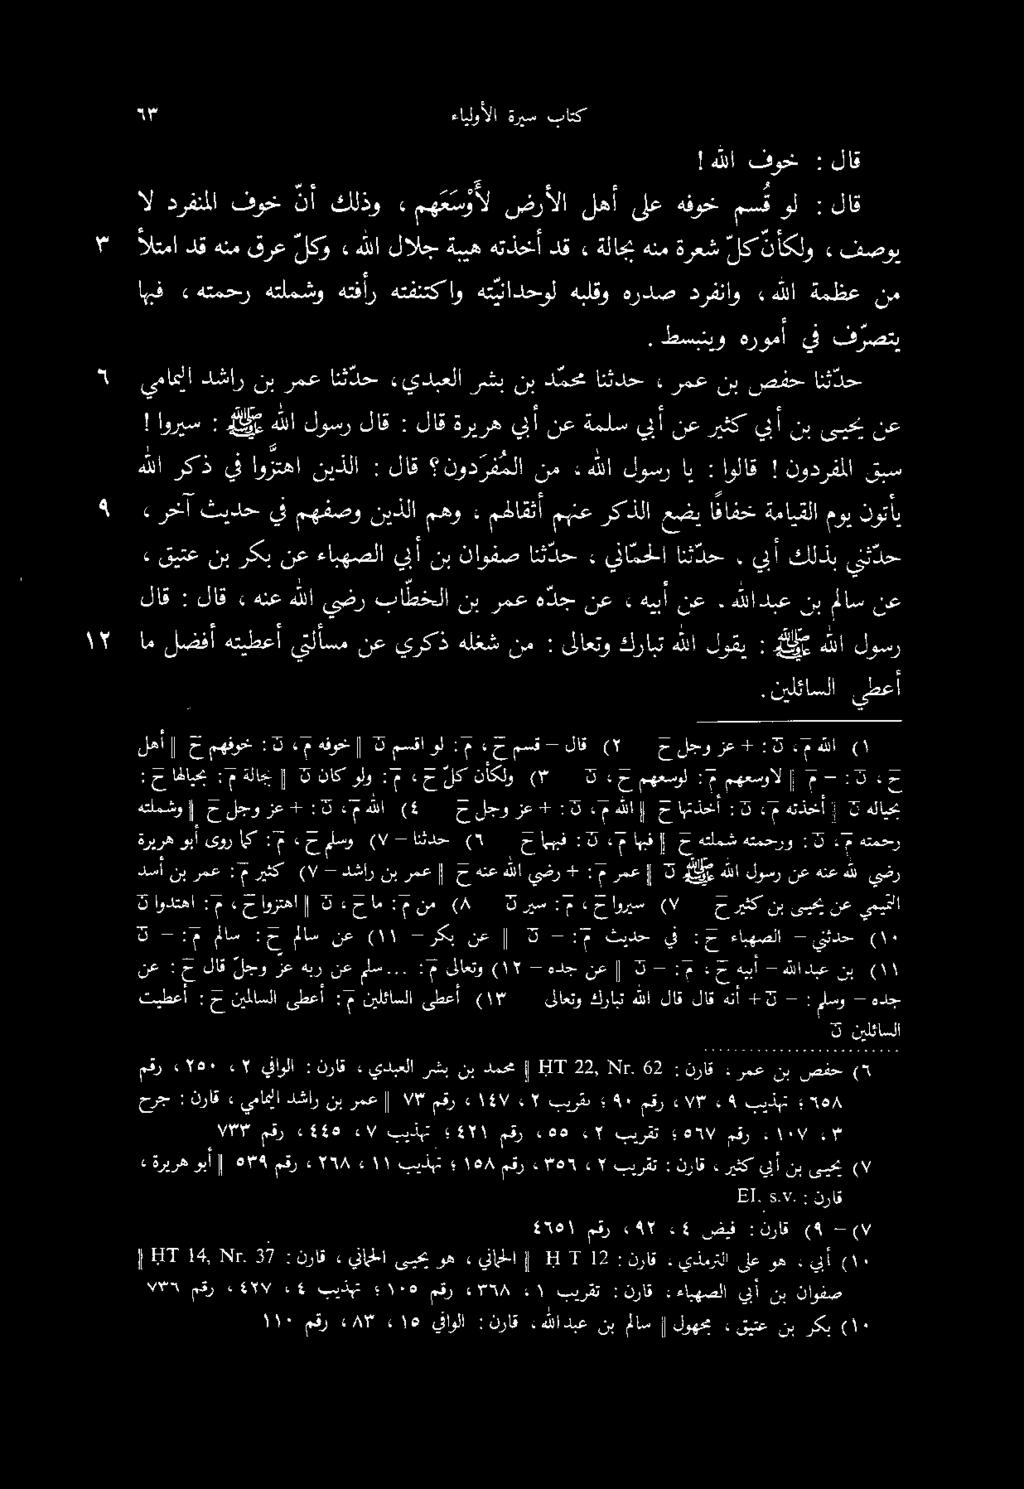 كتاب سيرة الأولياء ٦٣
قال : خوف الله !
قال : لو قُسم خوفه على أهل الأرض لأَوْسَعَهم ، وذلك أنّ خوف المنفرد لا
يوصف ، ولكأنّ كلّ شعرة منه بحالة ، قد أخذته هيبة جلال الله ، وكلّ عرق منه قد امتلأ ٣
من عظمة الله ، وانفرد صدره وقلبه لوحدانيّته واكتنفته رأفته وشملته رحمته ، فبها
يتصرّف في أموره وينبسط .
حدّثنا حفص بن عمر ، حدثنا محمّد بن بشر العبدي ، حدّثنا عمر بن راشد اليمامي ٦
عن يحيى بن أبي كثير عن أبي سلمة عن أبي هريرة قال : قال رسول الله ﷺ : سيروا !
سبق المفردون ! قالوا : يا رسول الله ، من المُفرَدون؟ قال : الذين اهتزّوا في ذكر الله
يأتون يوم القيامة خفافًا يضع الذكر عنهم أثقالهم ، وهم الذين وصفهم في حديث آخر ، ٩
حدّثني بذلك أبي ، حدّثنا الحمّاني ، حدّثنا صفوان بن أبي الصهباء عن بكر بن عتيق ،
عن سالم بن عبدالله . عن أبيه ، عن جدّه عمر بن الخطّاب رضي الله عنه ، قال : قال
رسول الله ﷺ : يقول الله تبارك وتعالى : من شغله ذكري عن مسألتي أعطيته أفضل ما ١٢
أعطي السائلين .
١) الله م ، ن : + عز وجل ح ٢) قال – قسم ح ، م : لو اقسم ن || خوفه م ، ن : خوفهم ح || أهل
ح ، ن : – م || ولاوسعهم م : لوسعهم ح ، ن ٣) ولكأن كلّ ح ، م : ولو كان ن || بحالة م : بحيالها ح :
بحياله ن || أخذته م ، ن : أخذتها ح || الله م ، ن : + عز وجل ح ٤) الله م ، ن : + عز وجل ح || وشملته
رحمته م ، ن : ورحمته شملته ح || فبها م ، ن : فبهما ح ٦) حدثنا – ٧) وسلم ح ، م : كما روى أبو هريرة
رضي الله عنه عن رسول الله ﷺ ن || عمر م : + رضي الله عنه ح || عمر بن راشد – ٧) كثير م : عمر بن أسد
التميمي عن يحيى بن كثير ح ٧) سيروا ح ، م : سير ن ٨) من م : ما ح ، ن || اهتزوا ح ، م : اهتدوا ن
١٠) حدثني – الصهباء ح : في حديث م : – ن || عن بكر – ١١) عن سالم ح : سالم م : – ن
١١) بن عبدالله – أبيه ح ، م : – ن || عن جده – ١٢) وتعالى م : ... سلم عن ربه عزّ وجلّ قال ح : عن
جده – وسلم : – ن + أنه قال قال الله تبارك وتعالى ١٣) أعطى السائلين م : أعطى السالمين ح : أعطيت
السائلين ن
٦) حفص بن عمر ، قارن : HT 22, Nr. 62 || محمد بن بشر العبدي ، قارن : الوافي ٢ ، ٢٥٠ ، رقم
٦٥٨ ؛ تهذيب ٩ ، ٧٣ ، رقم ٩٠ ؛ تقريب ٢ ، ١٤٧ ، رقم ٧٣ || عمر بن راشد اليمامي ، قارن : جرح
٣ ، ١٠٧ ، رقم ٥٦٧ ؛ تقريب ٢ ، ٥٥ ، رقم ٤٢١ ؛ تهذيب ٧ ، ٤٤٥ ، رقم ٧٣٣
٧) يحيى بن أبي كثير ، قارن : تقريب ٢ ، ٣٥٦ ، رقم ١٥٨ ؛ تهذيب ١١ ، ٢٦٨ ، رقم ٥٣٩ || أبو هريرة ،
قارن : EI. s.v.
٧) – ٩) قارن : فيض ٤ ، ٩٢ ، رقم ٤٦٥١
١٠) أبي ، وهو علي الترمذي ، قارن : HT 12 || الحماني ، وهو يحيى الحماني ، قارن : HT 14, Nr. 37 ||
صفوان بن أبي الصهباء ، قارن : تقريب ١ ، ٣٦٨ ، رقم ١٠٥ ؛ تهذيب ٤ ، ٤٢٧ ، رقم ٧٣٦
١٠) بكر بن عتيق ، مجهول || سالم بن عبدالله ، قارن : الوافي ١٥ ، ٨٣ ، رقم ١١٠